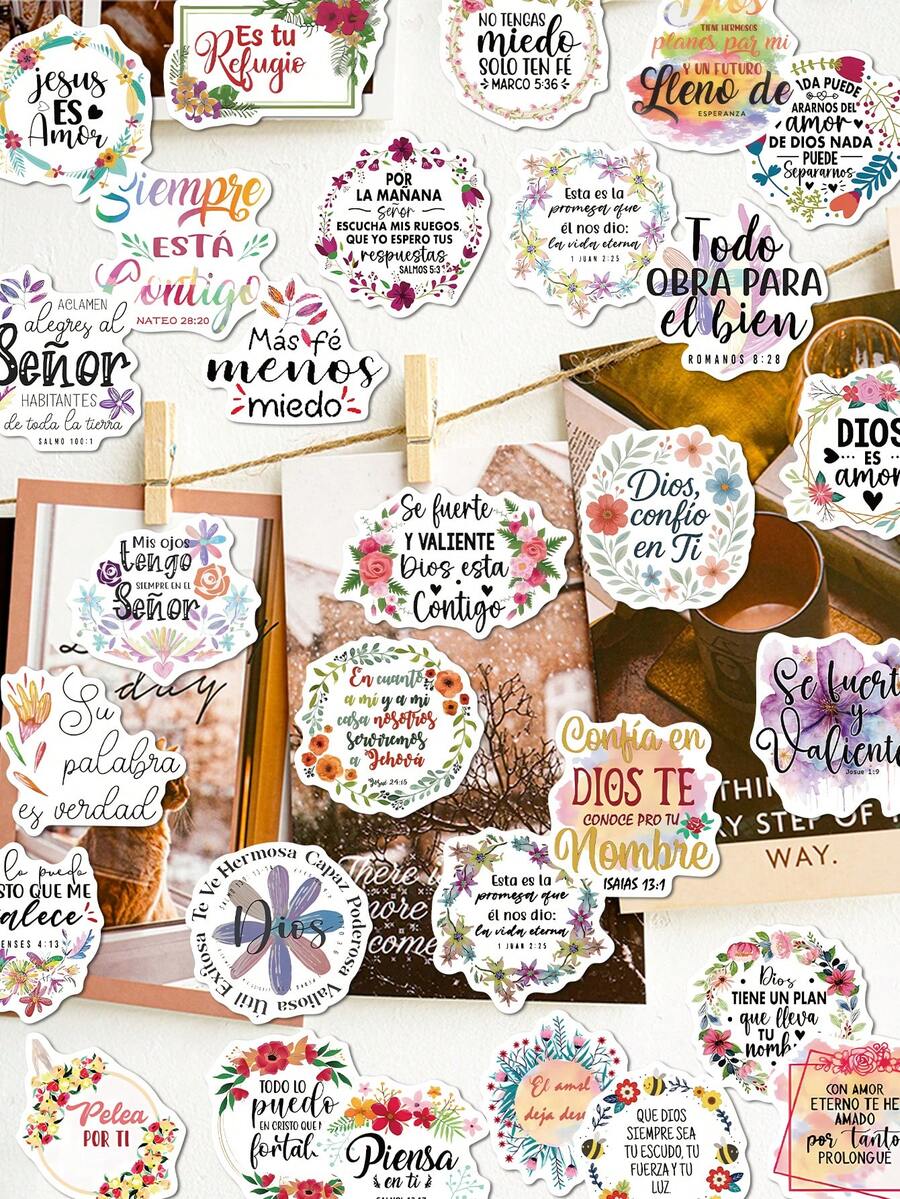 jesus
ES
Amor
Es tu
Refugio
NO TENGAS
miedo
SOLO TEN FÉ
MARCO 5:36
Dios
TIENE HERMOSOS
planes par mi
Y UN FUTURO
Lleno de
ESPERANZA
DA PUEDE
ARARNOS DEL
amor
DE DIOS NADA
PUEDE
Separarnos
Siempre
ESTÁ
Contigo
NATEO 28:20
POR
LA MAÑANA
Señor
ESCUCHA MIS RUEGOS,
QUE YO ESPERO TUS
respuestas
SALMOS 5:3
Esta es la
promesa que
él nos dio:
la vida eterna
1 JUAN 2:25
Todo
OBRA PARA
el bien
ROMANOS 8:28
ACLAMEN
alegres al
Señor
HABITANTES
de toda la tierra
SALMO 100:1
Más fé
menos
miedo
DIOS
ES
amor
Dios,
confío
en Ti
Se fuerte
Y VALIENTE
Dios esta
Contigo
Mis ojos
tengo
SIEMPRE EN EL
Señor
day
Su
palabra
es verdad
En cuanto
a mí y a mi
casa nosotros
serviremos
a Jehová
Josué 24:15
Confía en
DIOS TE
CONOCE PRO TU
Nombre
ISAIAS 13:1
Se fuert
y
Valiente
Josue 1:9
THI
RY STEP OF
WAY.
lo puedo
STO QUE ME
alece
ENSES 4:13
Te Ve Hermosa Capaz Poderosa Valiosa Util Exitosa
Dios
There i
more
come
Esta es la
promesa que
él nos dio:
la vida eterna
1 JUAN 2:25
Dios
TIENE UN PLAN
que lleva
TU
nomb
Pelea
POR TI
TODO LO
puedo
EN CRISTO QUE
fortal
Piensa
en ti
El amol
deja des
QUE DIOS
SIEMPRE SEA
TU ESCUDO, TU
FUERZA Y TU
LUZ.
CON AMOR
ETERNO TE HE
AMADO
por tanto
PROLONGUÉ